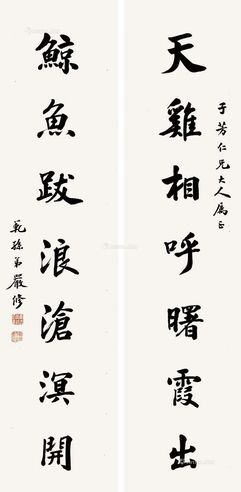 于芳仁兄大人属正
天雞相呼曙霞出
鯨魚跋浪滄溟開
範孫弟嚴修